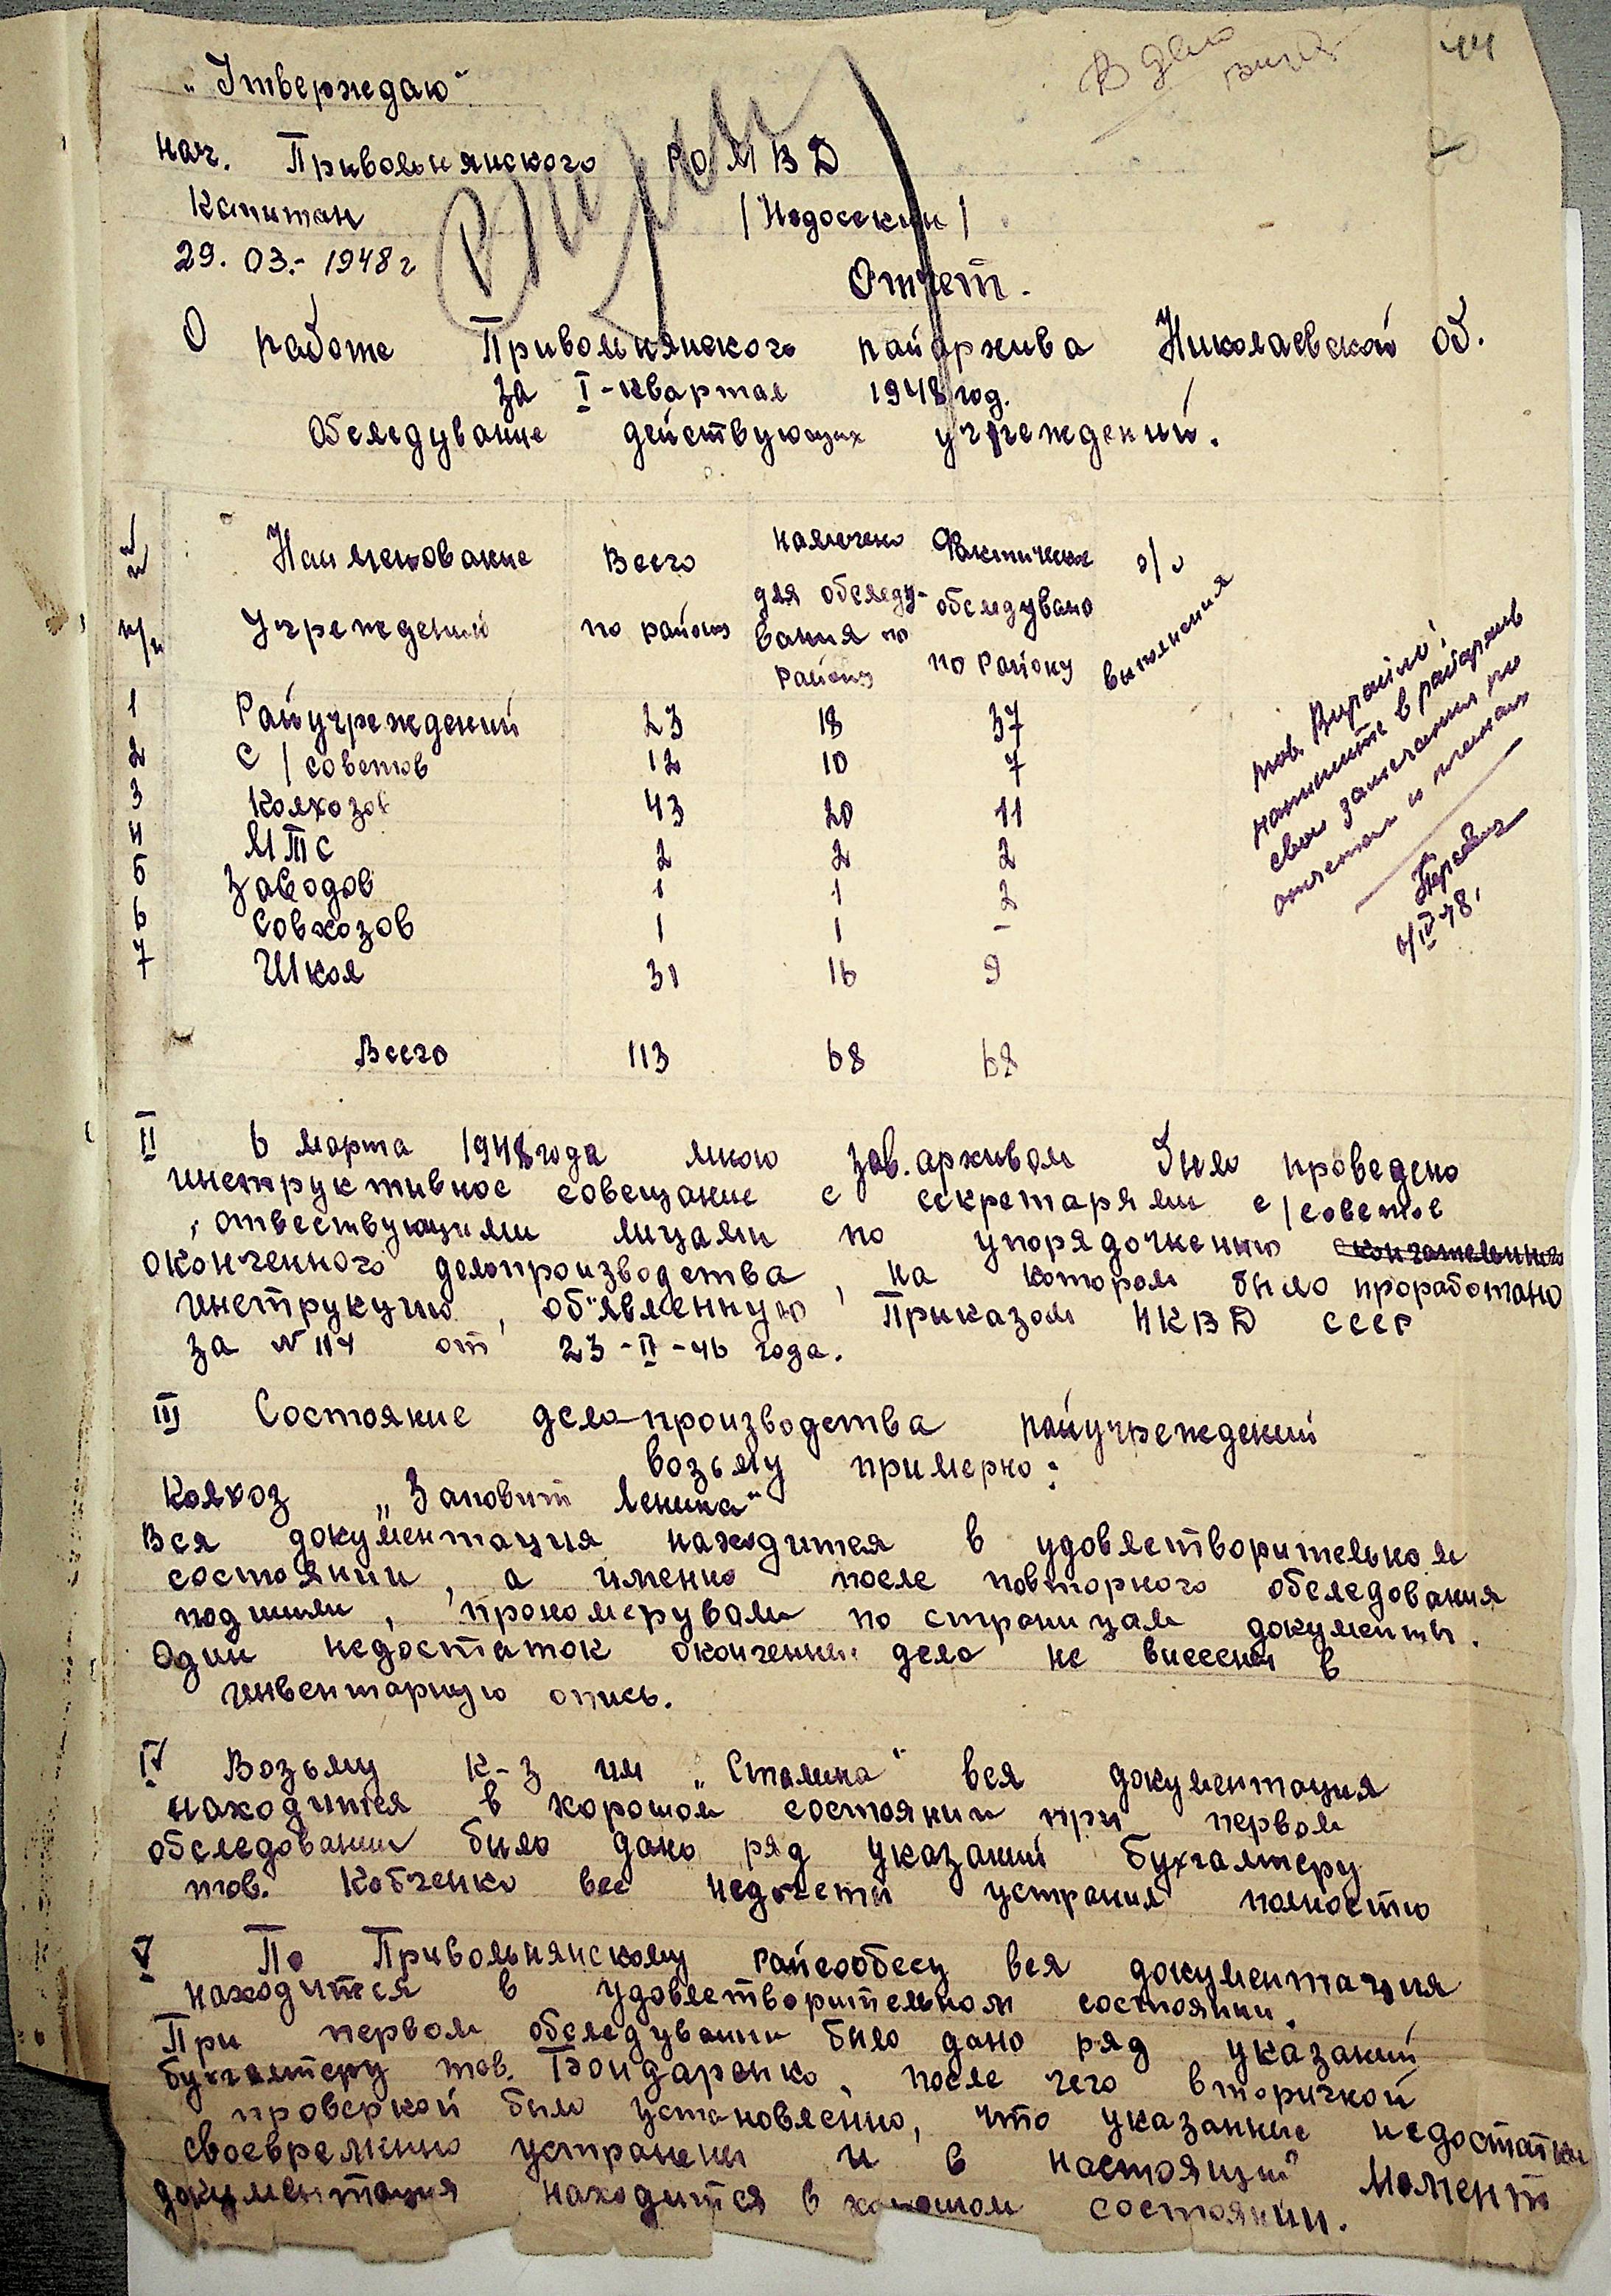 В дело
44
„Утверждаю“
Нач. Привольнянского РО МВД
Капитан /Недосекин/
29. 03.- 1948 г
Отчет.
О работе Привольнянского райархива Николаевской об.
За I-квартал 1948 год.
Обследувание действующих учреждений.
№№ п/п
Наименование Учреждений
Всего по району
намечено для обследувания по Району
Фактически обследувано по Району
о/о выполнения
1 Райучреждений 23 18 37
2 С/советов 12 10 7
3 Колхозов 43 20 11
4 МТС 2 2 2
5 Заводов 1 1 2
6 Совхозов 1 1 -
7 Школ 31 16 9
Всего 113 68 68
тов.
напишите в райархив
свои замечания по
отчетам и планам
/IV 48.
II 6 марта 1948 года мною зав. архивом было проведено
инструктивное совещание с секретарями с/советов
, отвествующими лицами по упорядочкению
оконченного делопроизводства, на котором было проработано
инструкцию, об"явленную Приказом НКВД СССР
за № 117 от 23-II-46 года.
III Состояние дела-производства райучреждений
возьму примерно:
Колхоз „Заповит Ленина“
Вся документация находится в удовлетворительном
состоянии, а именно после повторного обследования
подшили, прономерували по страницам документы.
Один недостаток оконченные дела не внесены в
инвентарную опись.
IV Возьму к-з им „Сталина“ вся документация
находится в хорошом состоянии при первом
обследовании было дано ряд указаний бухгалтеру
тов. Кобченко все недочеты устранил полностю
V По Привольнянскому райсообесу вся документация
находится в удовлетворительном состоянии.
При первом обследувании было дано ряд указаний
бухгалтеру тов. Бондаренко, после чего вторичкой
проверкой было установленно, что указанные недостатки
своевремино устранены и в настоящий момент
документация находится в хорошом состоянии.